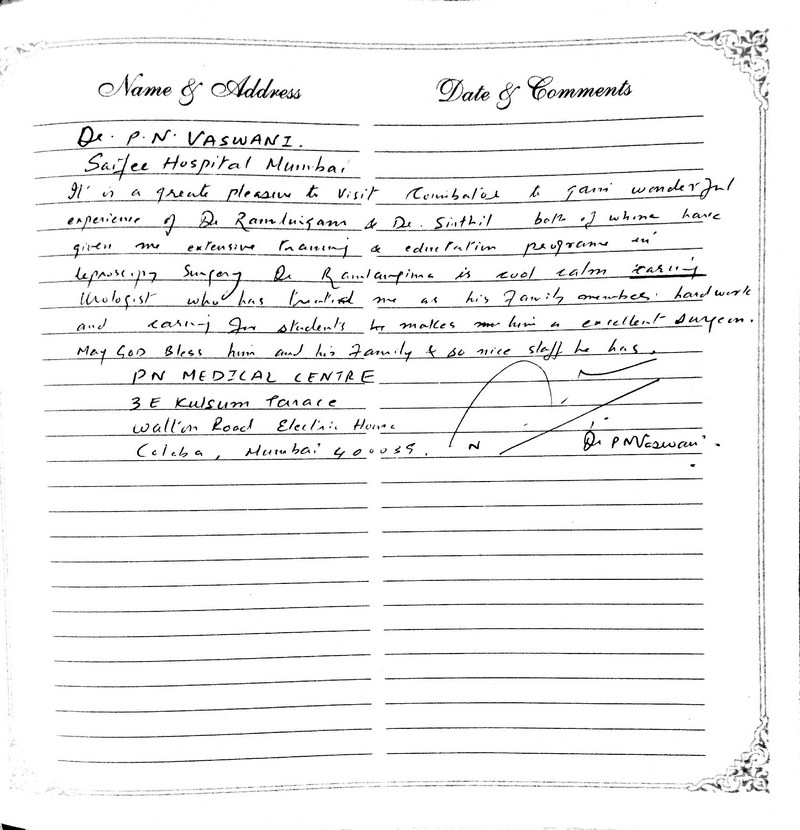 Name & Address
Date & Comments
Dr. P. N. VASWANI.
Saifee Hospital Mumbai
It is a greate pleasure to visit Coimbatoe to gain wonderful
experience of Dr Ramlingam & Dr. Sinthil both of whome have
given me extensive training & eductation programe in
leproscipy Surgery Dr is cool calm caring
Urologist who has treated me as his Family member. hardwork
and caring for students he makes him a excellent surgeon.
May GOD Bless him and his Family & so nice staff he has.
PN MEDICAL CENTRE
3 E Kulsum Tarace
Walton Road Electric House
Colaba, Mumbai 400039.
Dr PN Vaswani.